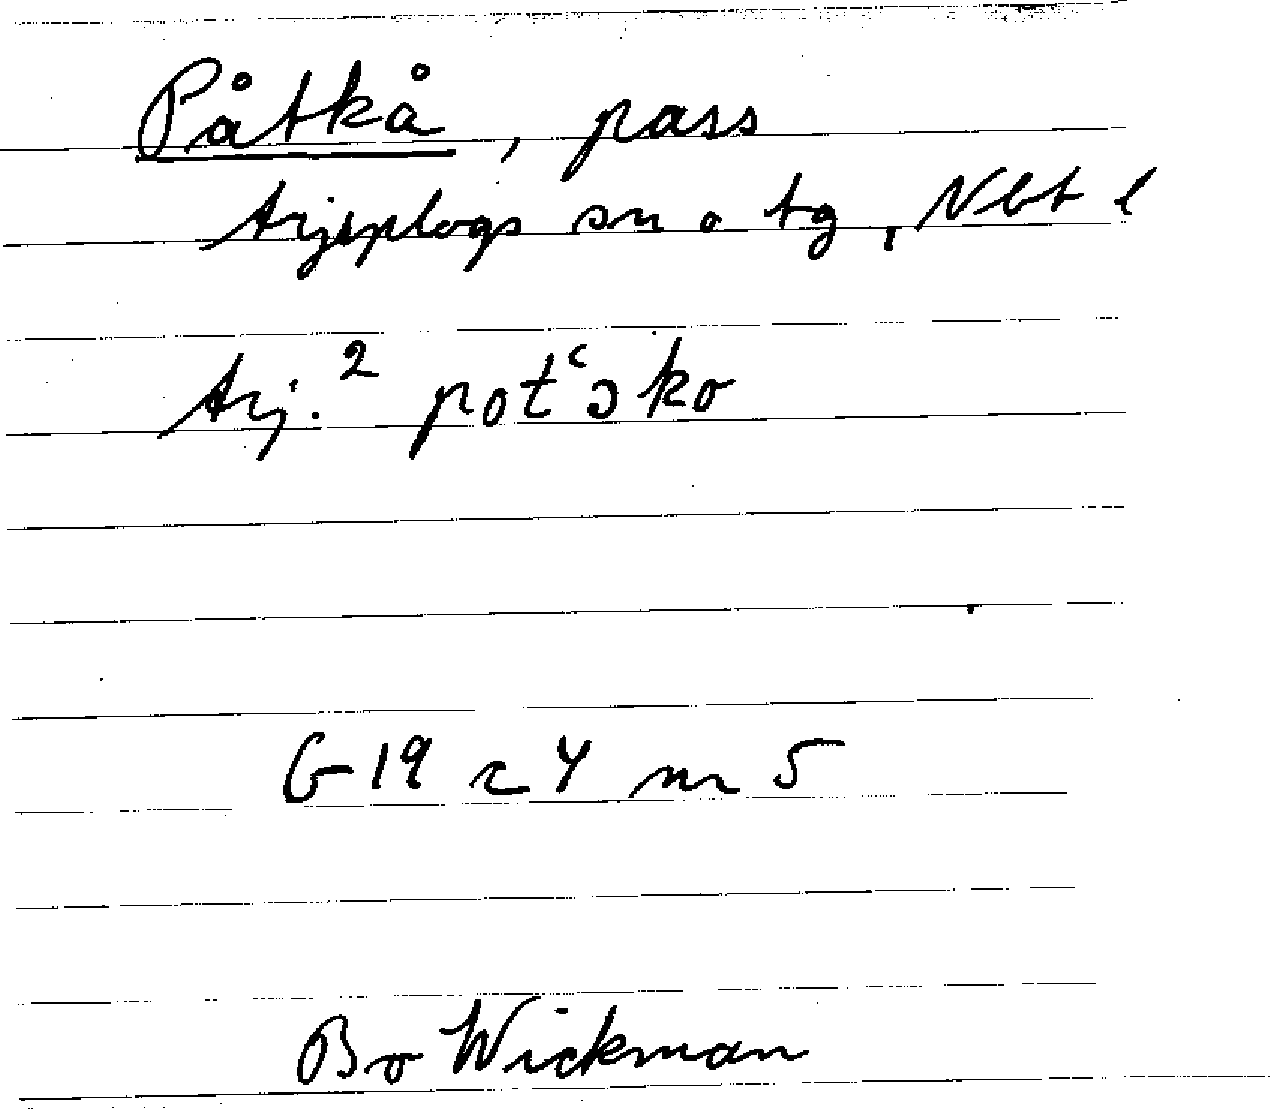 Påtkå, pass
Arjeplogs sn o tg, Nbt l
Arj.² potʿɔko
G 19 c 4 nr 5
Bo Wickman